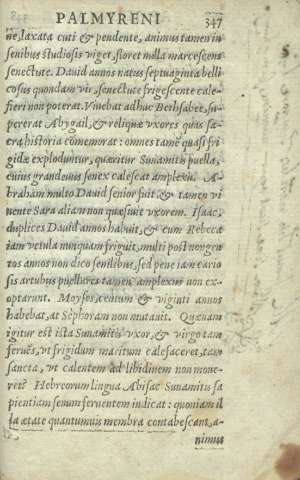 PALMYRENI 347
ne, laxata cuti & pendente, animus tamen in
senibus studiosis viget, floret nulla marcescens
senectute. Dauid annos natus septuaginta belli
cosus quondam vir, senectute frigescente cale-
fieri non poterat. Viuebat adhuc Bethsabet, su-
pererat Abygail, & reliquæ vxores quas sa-
cra historia cõmemorat: omnes tamẽ quasi fri
gidæ exploduntur, quæritur Sunamitis puella,
cuius grandeuus senex calefceat amplexu. A-
braham multo Dauid senior fuit, & tamen vi
uente Sara aliam non quæsiuit vxorem. Isaac,
duplices Dauid annos habuit, & cum Rebeca
iam vetula nunquam friguit, multi post nongen
tos annos non dico senilibus, sed pene iam cario
sis artubus puellares tamen amplexus non ex-
optarunt. Moyses, centum & viginti annos
habebat, at Sephoram non mutauit. Quenam
igitur est ista Sunamitis vxor, & virgo tam
feruẽs, vt frigidum maritum calefaceret, tam
sancta, vt calentem ad libidinem non moue-
ret? Hebreorum lingua Abisac Sunamitis sa
pientiam senum feruentem indicat: quoniam il
la ætate quantumuis membra contabescant, a-
nimus